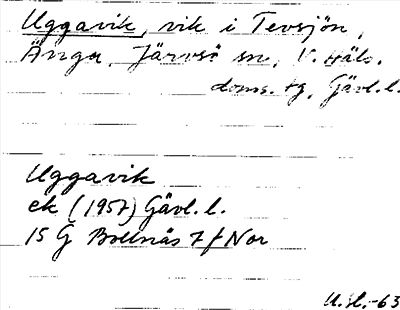 Uggavik, vik i Tevsjön,
Änga, Järvsö sn, V. Häls.
doms. tg, Gävl. l.
Uggavik
ek (1957) Gävl. l.
15 G Bollnäs 7 f Nor
U.H.-63